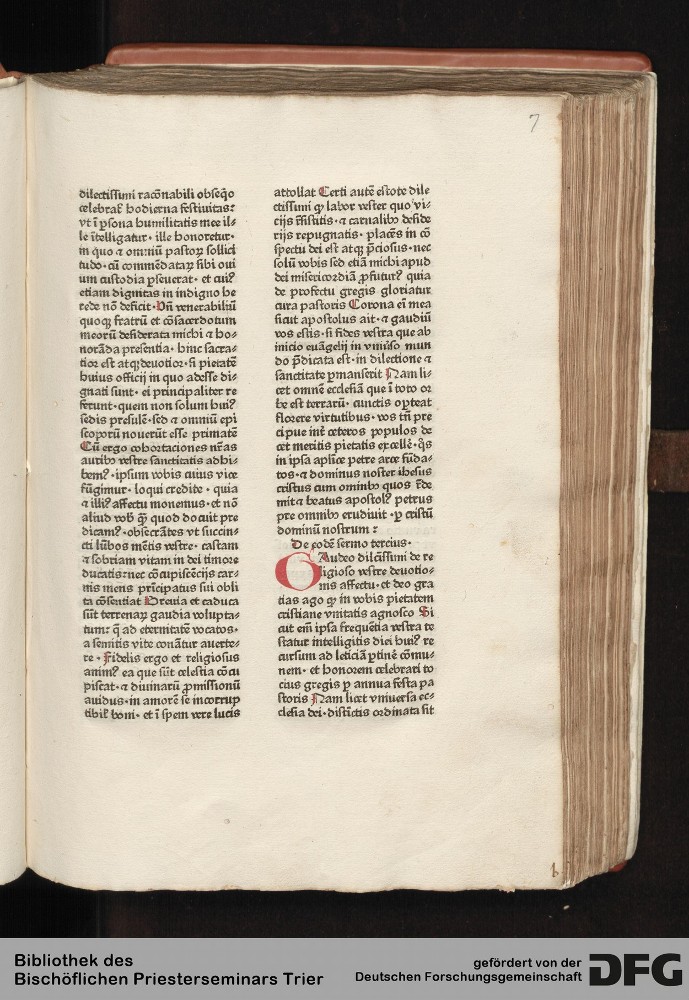 7
dilectissimi racōnabili obseq̄o
celebrať hodierna festiuitas:
vt ī ꝑsona humilitatis mee il⸗
le ītelligatur · ille honoretur ·
in quo ⁊ omniū pastoꝝ sollici
tudo · cū commēdataꝝ sibi oui
um custodia ꝑseuerat · et cuiꝰ
etiam dignitas in indigno he
rede nō deficit · Vñ venerabiliū
quoqꝫ fratrū et cōsacerdotum
meorū desiderata michi ⁊ ho⸗
norāda presentia · hinc sacra⸗
tior est atqꝫ deuotior · si pietatē
huius officij in quo adesse di⸗
gnati sunt · ei principaliter re
ferunt · quem non solum huiꝰ
sedis presulē · sed ⁊ omniū epi
scoporū nouerūt esse primatē
Cū ergo cohortaciones nr̄as
auribꝫ vestre sanctitatis adhi⸗
bemꝰ · ipsum vobis cuius vice
fūgimur · loqui credite · quia
⁊ illiꝰ affectu monemus · et nō
aliud vob̄ q̄ꝫ quod docuit pre
dicamꝰ · obsecrātes vt succin⸗
cti lūbos mētis vestre · castam
⁊ sobriam vitam in dei timore
ducatis : nec cōcupiscēcijs car⸗
nis mens prīcipatus sui obli
ta cōsentiat Breuia et caduca
sūt terrenaꝝ gaudia volupta⸗
tum : q̄ ad eternitatē vocatos ·
a semitis vite conātur auerte⸗
re · Fidelis ergo et religiosus
animꝰ ea que sūt celestia cōcu
piscat · ⁊ diuinarū ꝓmissionū
auidus · in amorē se incorrup
tibiľ boni · et ī spem vere lucis
attollat Certi autē estote dile
ctissimi ꝙ labor vester quo vi⸗
cijs r̄sistitis · ⁊ carnalibꝫ deside
rijs repugnatis · placēs in cō
spectu dei est atqꝫ p̄ciosus · nec
solū vobis sed etiā michi apud
dei misericordiā ꝓfuturꝰ quia
de profectu gregis gloriatur
cura pastoris Corona eī mea
sicut apostolus ait · ⁊ gaudiū
vos estis · si fides vestra que ab
inicio euāgelij in vniūso mun
do p̄dicata est · in dilectione ⁊
sanctitate ꝑmanserit Nam li⸗
cet omnē ecclesiā que ī toto or
be est terrarū · cunctis oꝑteat
florere virtutibus · vos tn̄ pre
cipue int̄ ceteros populos de
cet meritis pietatis excelľe · q̄s
in ipsa apl̄ice petre arce fūda⸗
tos · ⁊ dominus noster ihesus
cristus cum omnibꝫ quos r̄de
mit ⁊ beatus apostolꝰ petrus
pre omnibꝫ erudiuit · ꝑ cristū
dominū nostrum :
De eodē sermo tercius ·
GAudeo dilc̄issimi de re
ligioso vestre deuotio⸗
nis affectu · et deo gra
tias ago ꝙ in vobis pietatem
cristiane vnitatis agnosco Si
cut eīm ipsa frequētia vestra te
statur intelligitis diei huiꝰ re
cursum ad leticiā ꝑtinē cōmu⸗
nem · et honorem celebrari to
cius gregis ꝑ annua festa pa
storis Nam licet vniuersa ec⸗
clesia dei · distīctis ordinata sit
b
Bibliothek des
Bischöflichen Priesterseminars Trier
gefördert von der
Deutschen Forschungsgemeinschaft
DFG